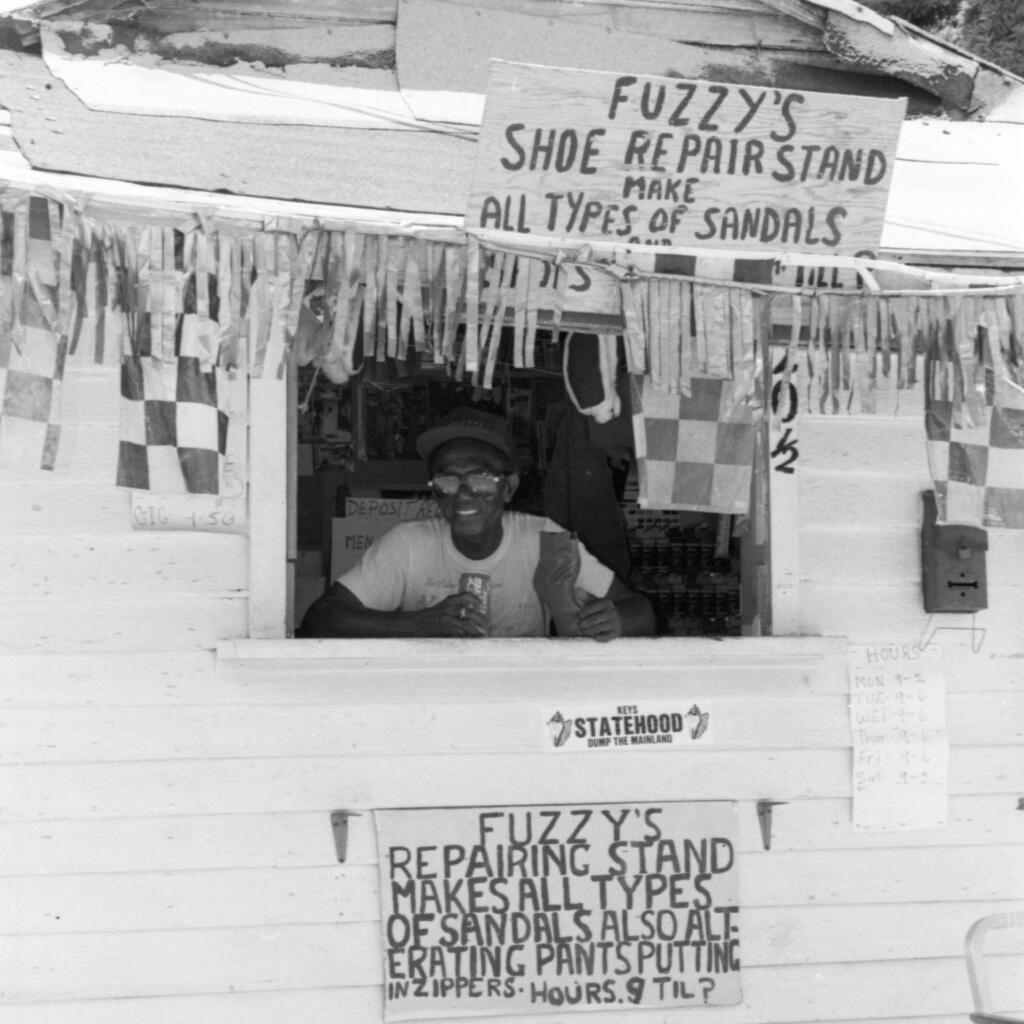 FUZZY'S
SHOE REPAIR STAND
MAKE
ALL TYPES OF SANDALS
AND
TILL ?
DEPOSIT REQ
MEN
HOURS
MON 9-2
TUE 9-6
WED 9-6
Thur 9-6
Fri 9-6
Sat 9-2
KEYS
STATEHOOD
DUMP THE MAINLAND
FUZZY'S
REPAIRING STAND
MAKES ALL TYPES
OF SANDALS ALSO ALT-
ERATING PANTS PUTTING
IN ZIPPERS. HOURS. 9 TIL?